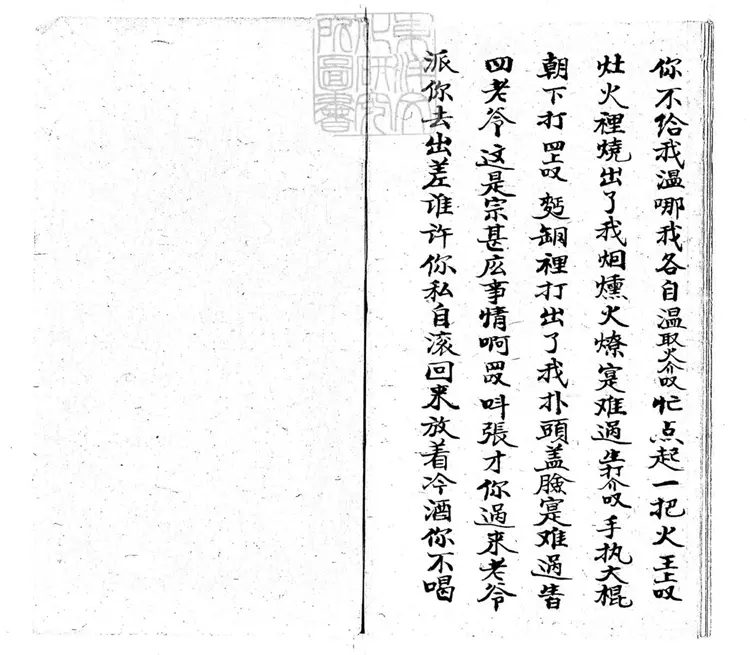 你不给我温哪我各自温取火介叹忙点起一把火王上叹
灶火裡燒出了我烟燻火燎寔难過生打介叹手执大棍
朝下打四上叹麪缸裡打出了我扑頭盖臉寔难過皆
四老爷这是宗甚庅事情啊四叹呌張才你過来老爷
派你去出差谁许你私自滚回来放着冷酒你不喝